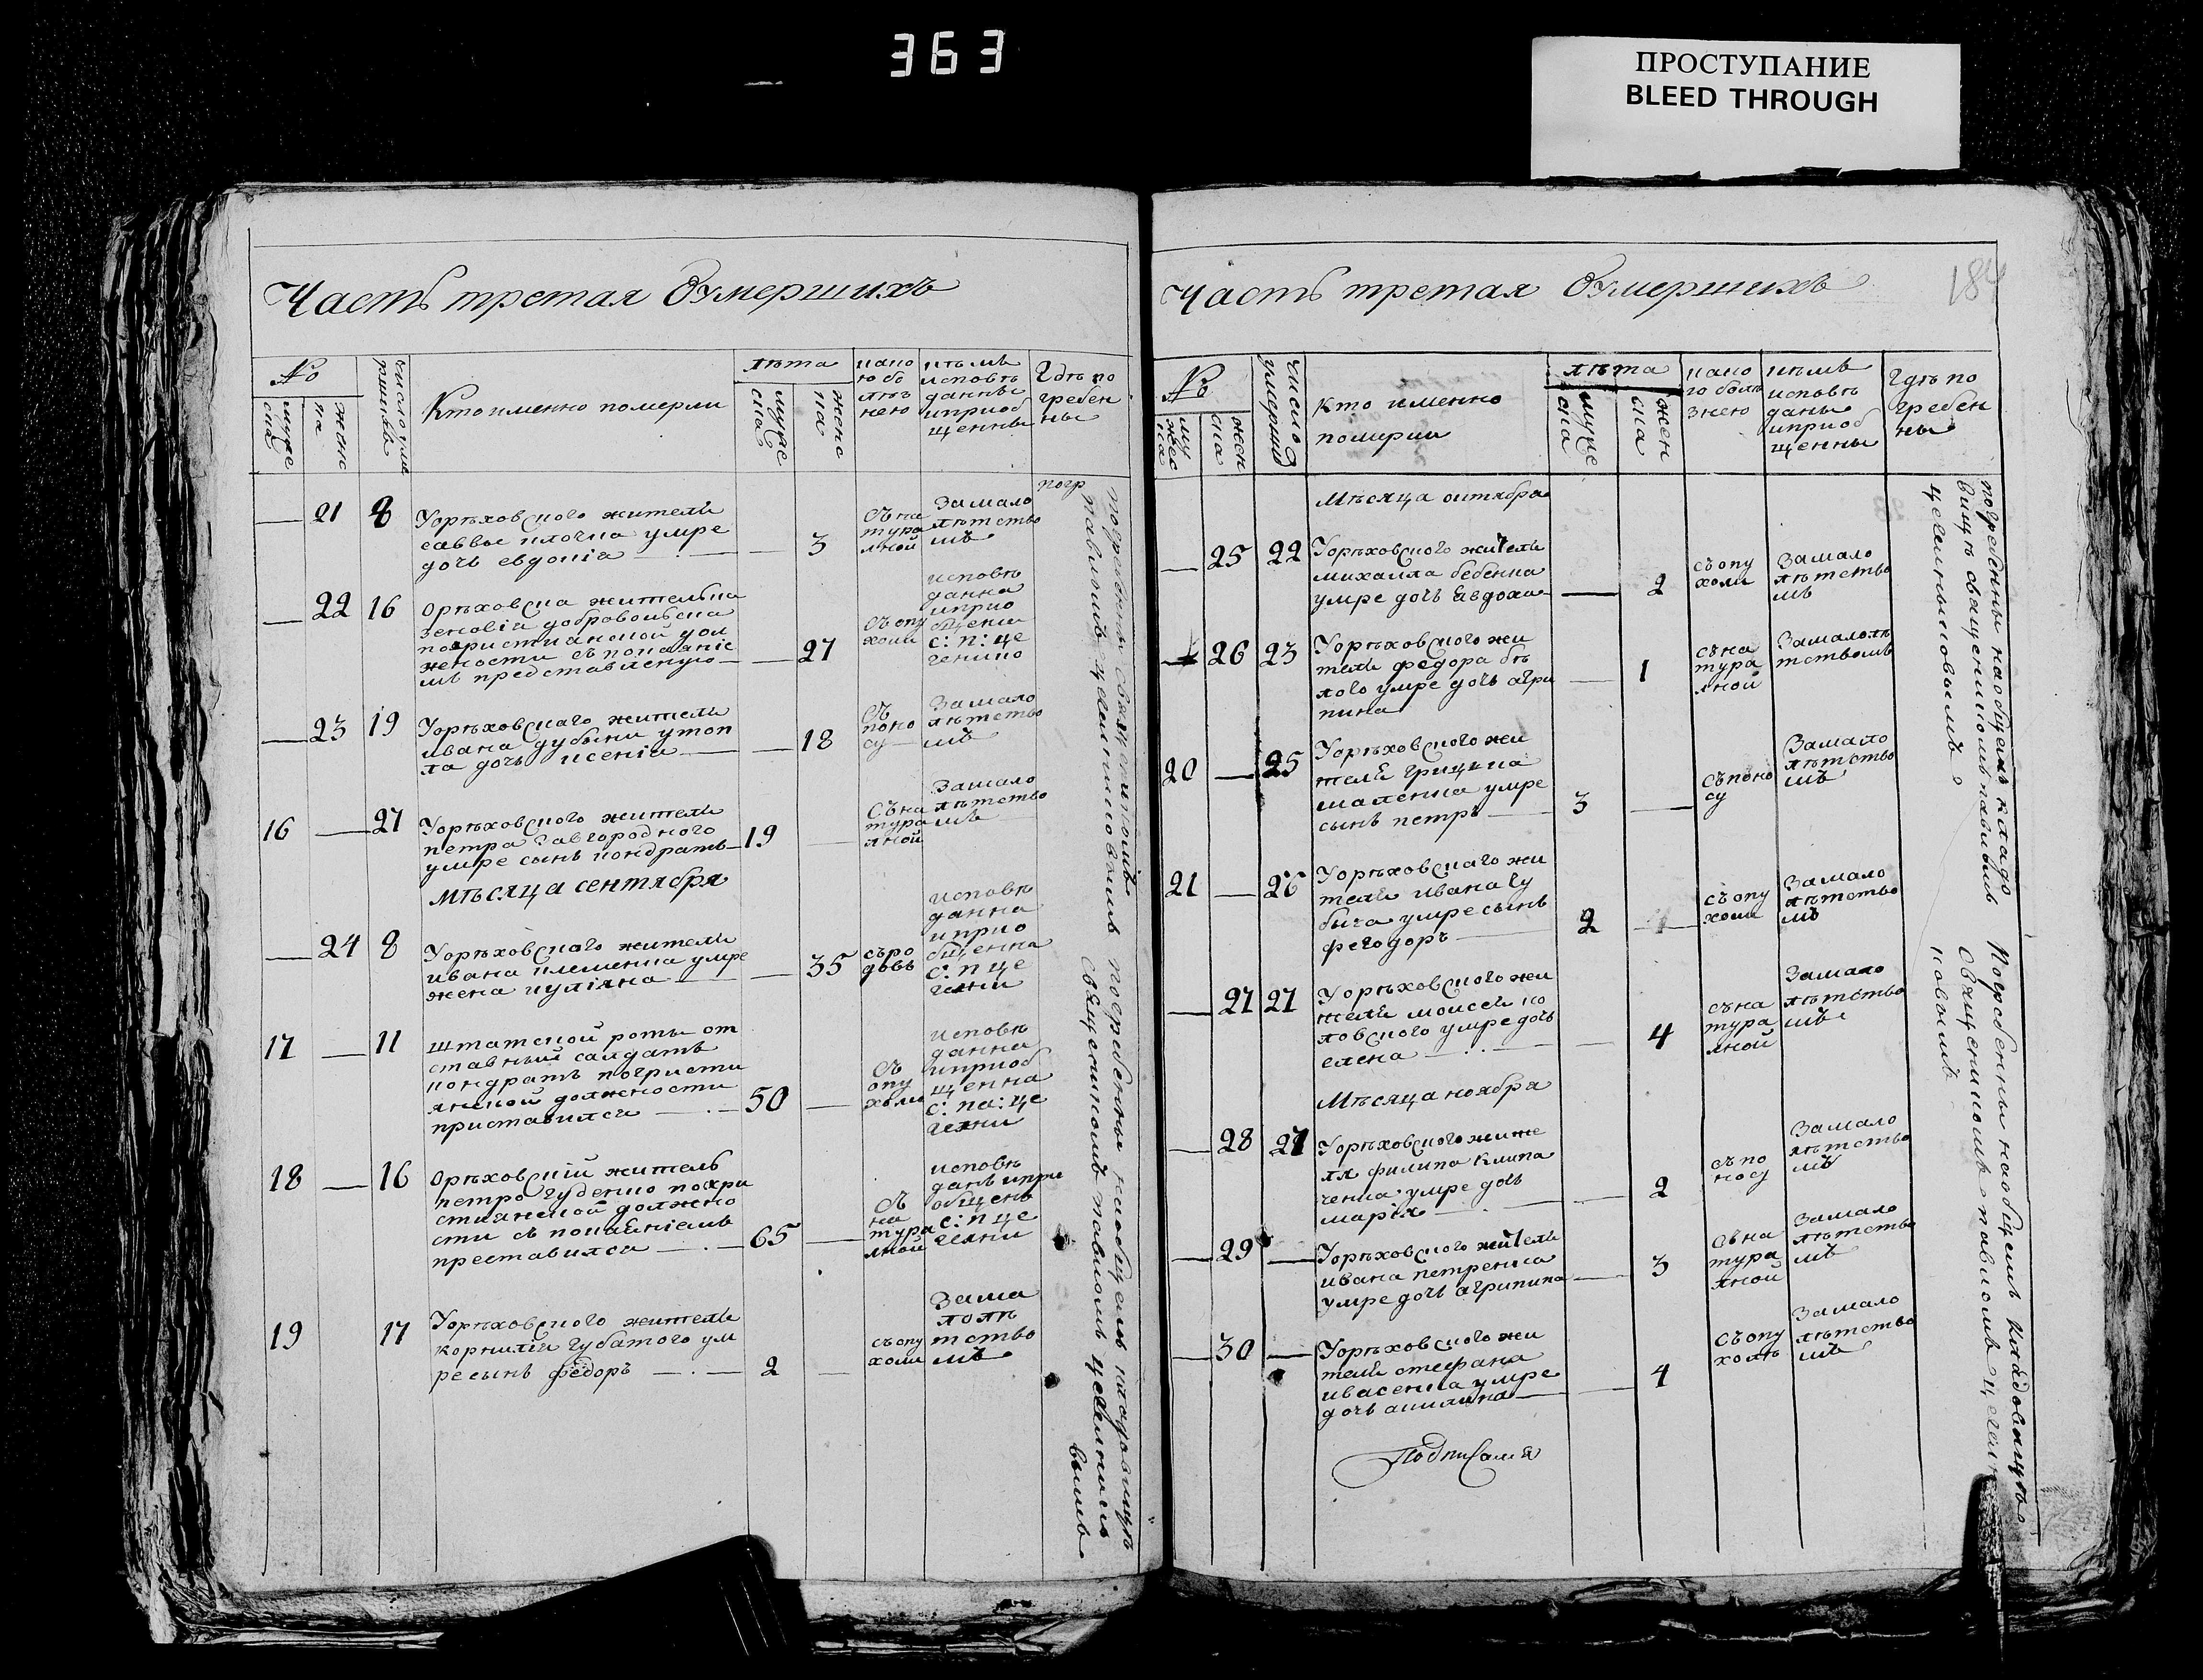 363
ПРОСТУПАНИЕ
BLEED THROUGH
Часть третая Оумершихъ
№
мужеска
женска
число умершихъ
Кто именно померли
лѣта
мужеска
женска
какою болѣзнею
кѣмъ
исповѣ
даны
и приоб
щенны
Гдѣ по
гребен
ны
21 8
У орѣховского жителя
саввы
умре
дочь евдокіа
3
съ на
тура
лной
За мало
лѣтство
мъ
22 16
Орѣховска жителька
зеновіа
похристианской дол
жности съ покаяніе
мъ представлсуюсь
27
съ опу
холи
исповѣ
данна
и приоб
щени
с: п: це
23 19
У орѣховскаго жителя
ивана дубыни утоп
ла дочь ксенія
18
съ
поно
су
За мало
лѣтство
мъ
16 27
У орѣховского жителя
петра Завгородного
умре сынъ кондратъ
19
съ на
тура
лной
За мало
лѣтство
мъ
Мѣсяца сентября
24 8
У орѣховскаго жителя
ивана клеменка умре
жена иулияна
35
съ ро
довъ
исповѣ
данна
и прио
бщенна
с: п це
17 11
штатской роты от
ставный салдатъ
кондратъ похристи
янской должности
приставился
50
съ
опу
холи
исповѣ
данна
и приоб
щенна
с: па: це
18 16
Орѣховскій житель
петро Гуденко по хри
стиянской должно
сти съ покаеніемъ
преставился
65
съ
на
тура
лной
исповѣ
данъ и при
общенъ
с: п це
19 17
У орѣховского жителя
корнилія Губатого ум
ре сынъ федоръ
2
съ опу
холи
За ма
лолѣ
тство
мъ
погр
погребенны на общемъ кладовищѣ
священникомъ павломъ
Часть третая Оумершихъ
184
№
мужеска
женска
число умерши
Кто именно
померли
лѣта
мужеска
женска
какою болѣзнею
кѣмъ
исповѣ
даны
и приоб
щенны
Гдѣ по
гребен
ны
Мѣсяца октября
25 22
У орѣховского жителя
михаила бебенка
умре дочь Евдоха
2
съ опу
холи
За мало
лѣтство
мъ
26 23
У орѣховского жи
теля федора бѣ
лого умре дочь агри
пина
1
съ на
тура
лной
За малолѣ
тствомъ
20 25
У орѣховского жи
теля грицька
маленка умре
сынъ петръ
3
съ поно
су
За мало
лѣтство
мъ
21 26
У орѣховскаго жи
теля ивана Гу
бича умре сынъ
феодоръ
2
съ опу
холи
За мало
лѣтство
мъ
27 27
У орѣховского жи
теля моисея ко
ловского умре дочь
елена
4
съ на
тура
лной
За мало
лѣтство
мъ
Мѣсяца ноября
28 27
У орѣховского жите
ля филипа Клипа
ченка умре дочь
марія
2
съ по
носу
За мало
лѣтство
мъ
29
У орѣховского жителя
ивана петренка
умре дочь агрипина
3
съ на
тура
лной
За мало
лѣтство
мъ
30
У орѣховского жи
теля стефана
ивасенка умре
дочь акилина
4
съ опу
холѣ
За мало
лѣтство
мъ
погребенны на общемъ кладо
вищѣ священникомъ павломъ
Погребенны на общемъ кладовищѣ
священникомъ павломъ